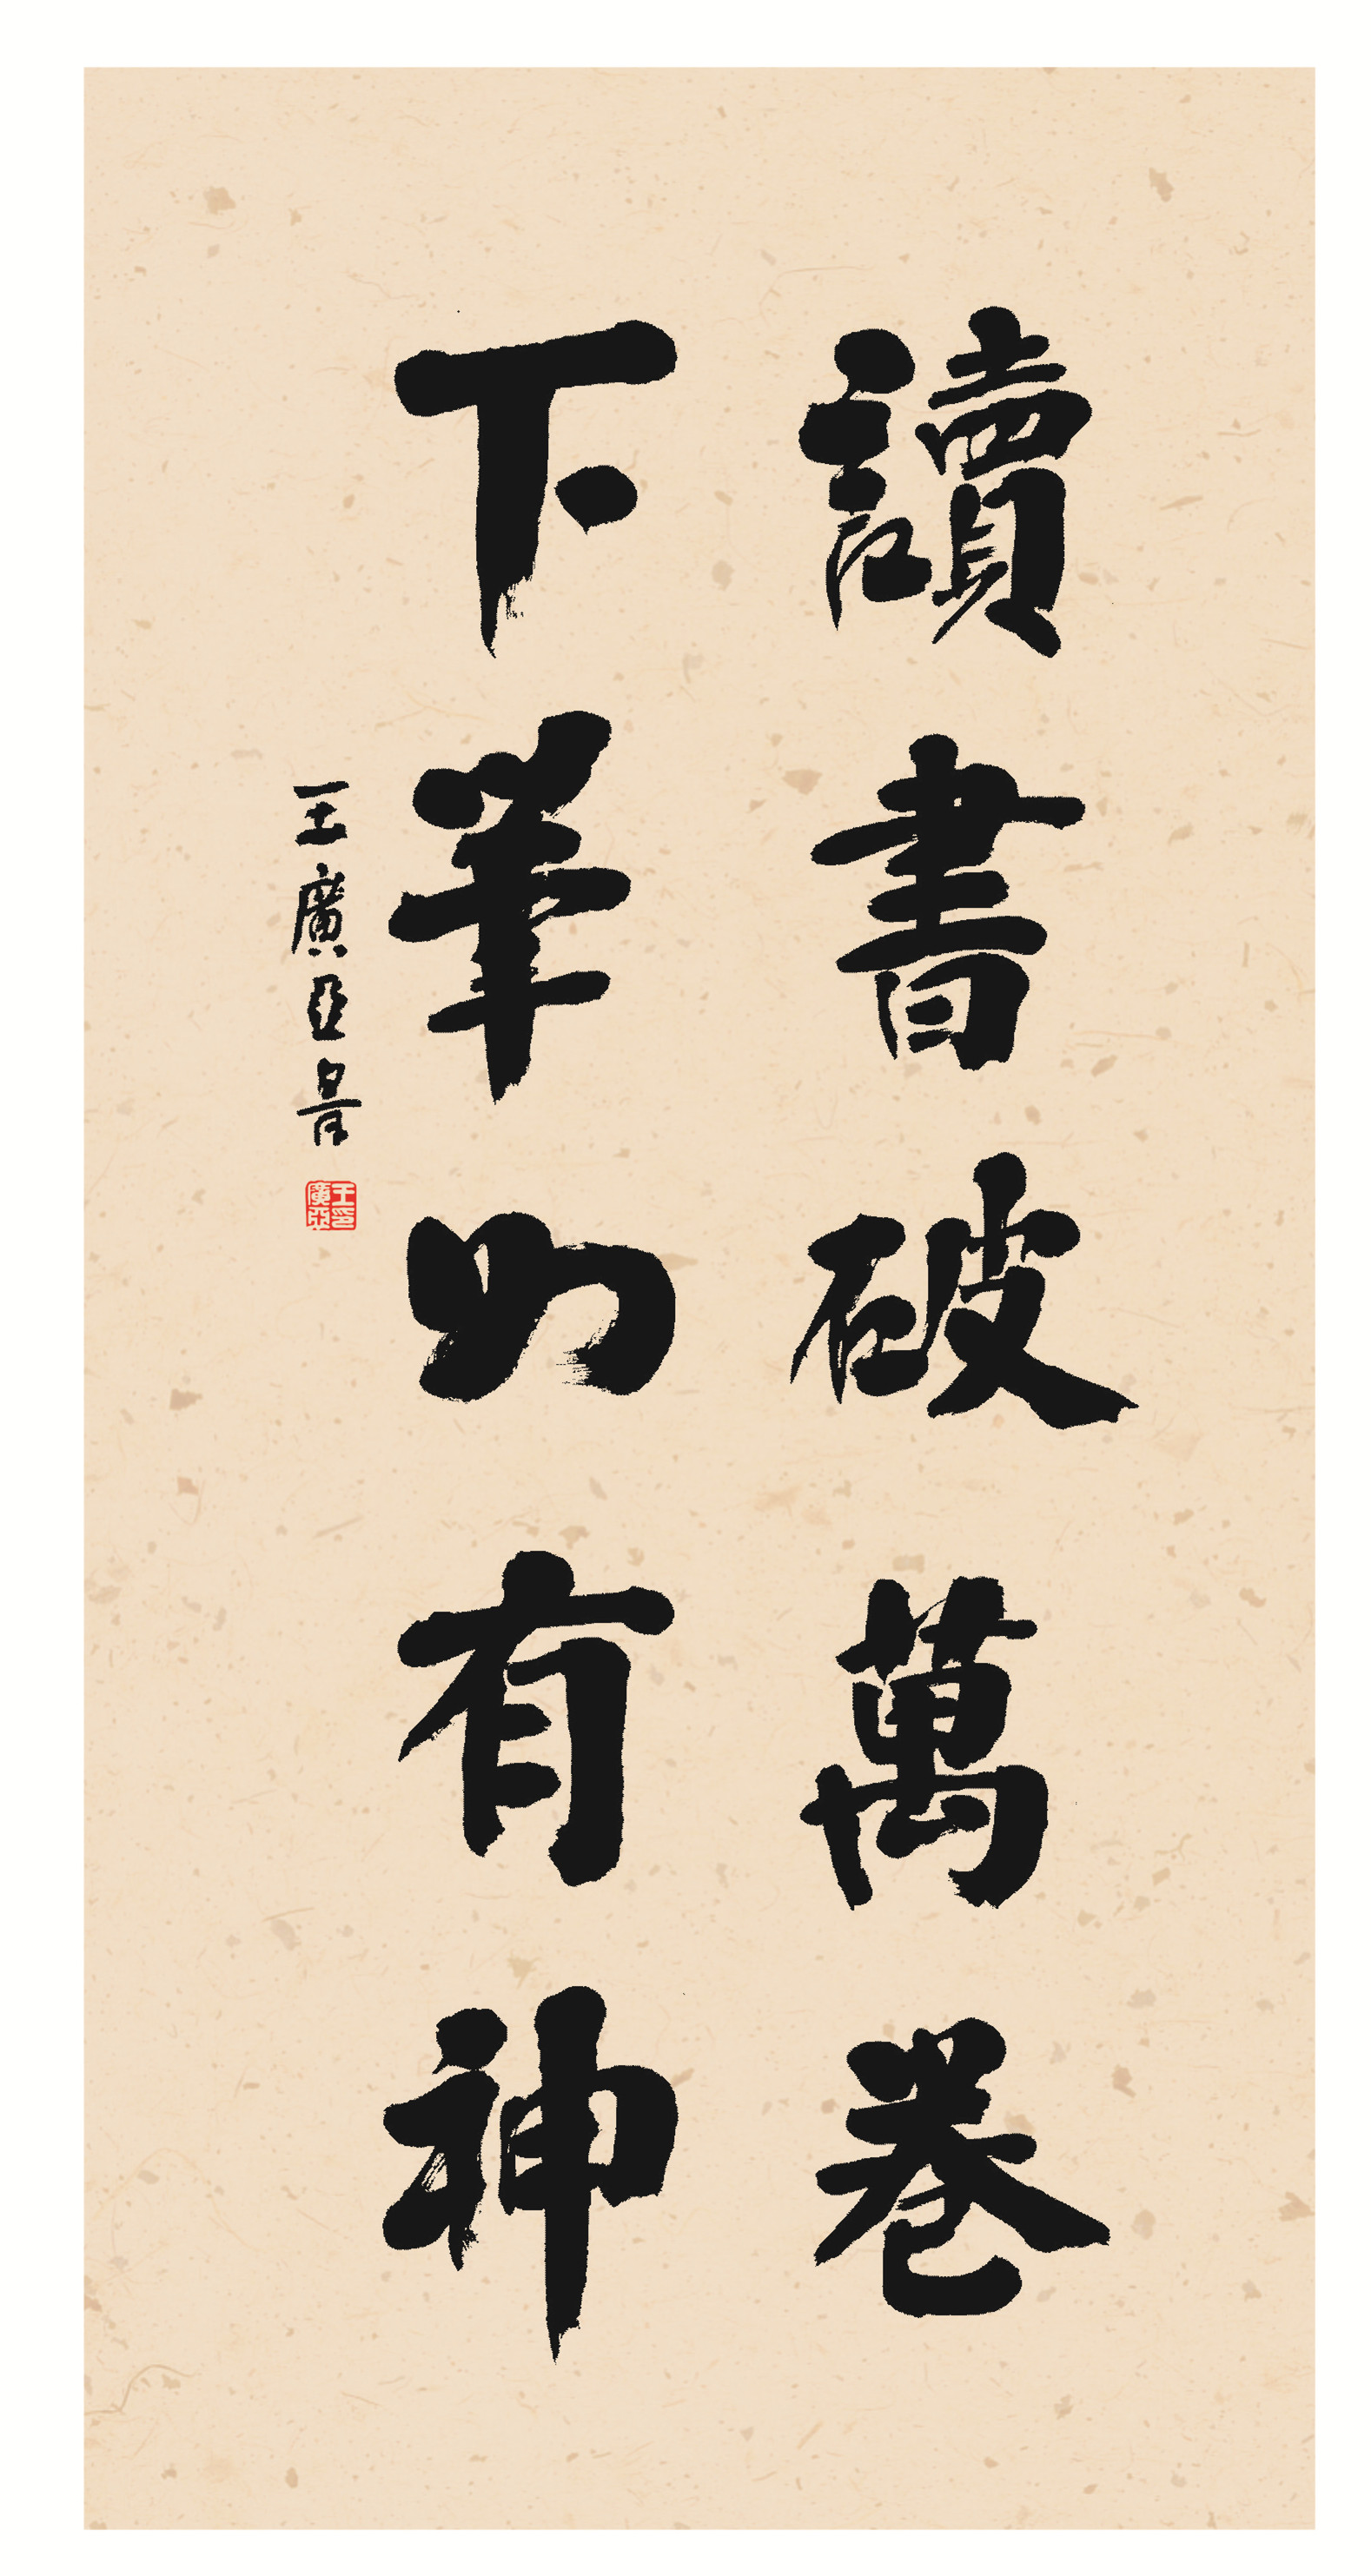 讀書破萬卷
下筆如有神
王廣亞書
王印廣亞